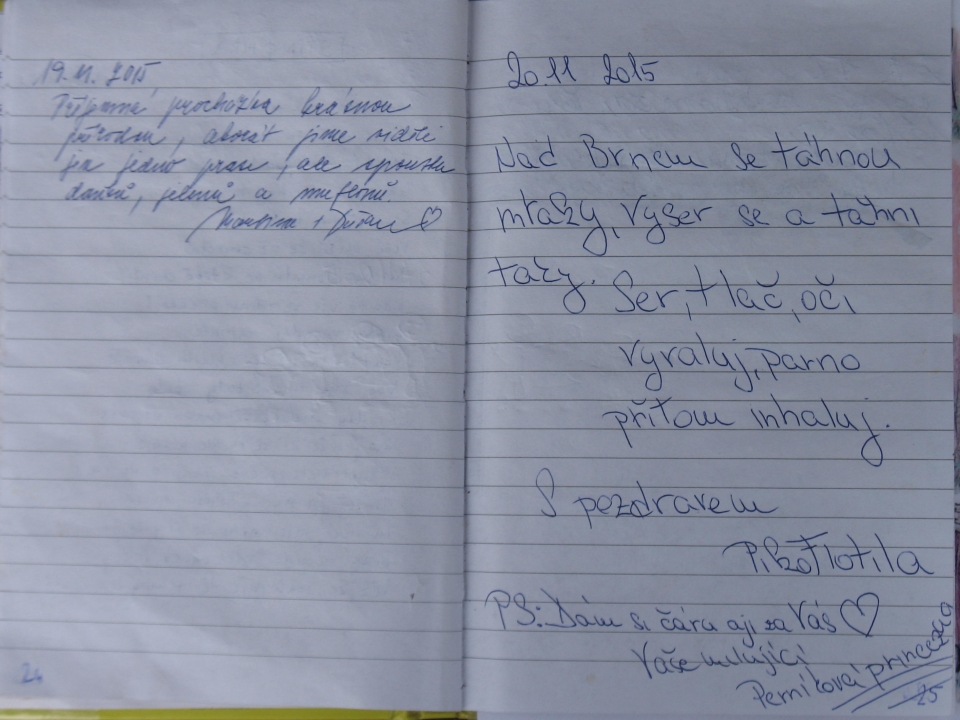 19.11.2015
Příjemná procházka krásnou
přírodou, akorát jsme viděli
jen jedno prase, ale spoustu
daňků, jelenů a muflonů.
20.11 2015
Nad Brnem se táhnou
mraky, vyser se a táhni
taky. Ser, tlač, oči
vyvaluj, parno
přitom inhaluj.
S pozdravem
Pikoflotila
PS: Dám si čáru aji za Vás ♡
Vaše milující
Perníková princezna
24
25